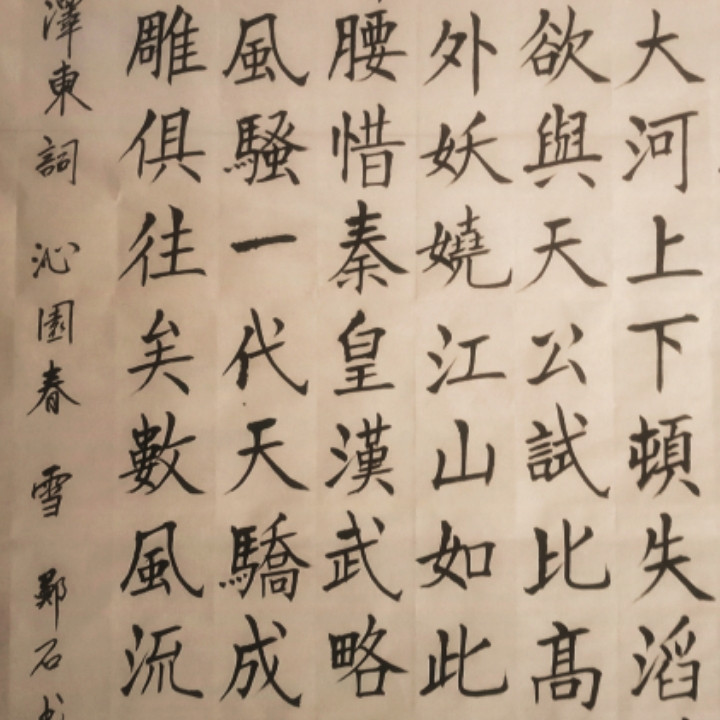 大河上下頓失滔
欲與天公試比高
外妖嬈江山如此
腰惜秦皇漢武略
風騷一代天驕成
雕俱往矣數風流
澤東詞 沁園春 雪 鄭石